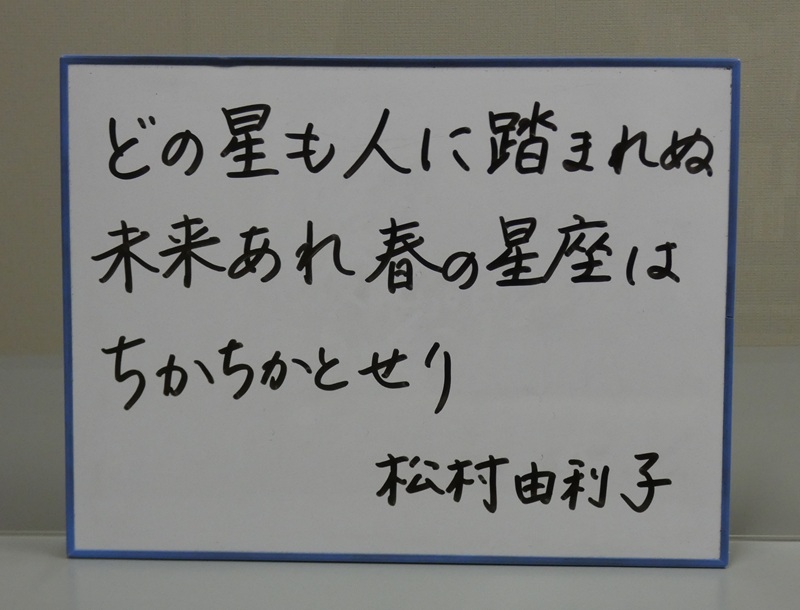 どの星も人に踏まれぬ
未来あれ春の星座は
ちかちかとせり
松村由利子